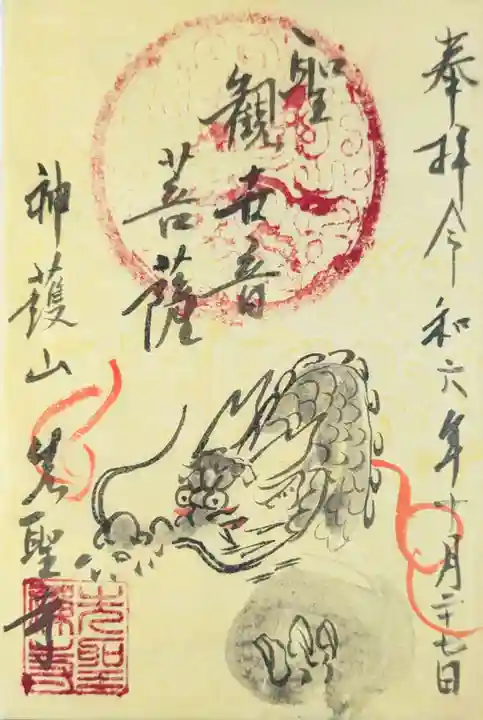 奉拝令和六年十月二十七日
聖
観世音
菩薩
神護山 光聖寺